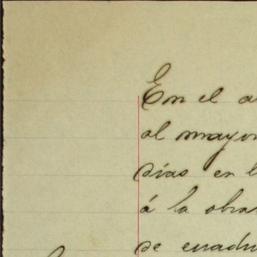 En el a
al mayor
dias en l
á la obra
de cuadr